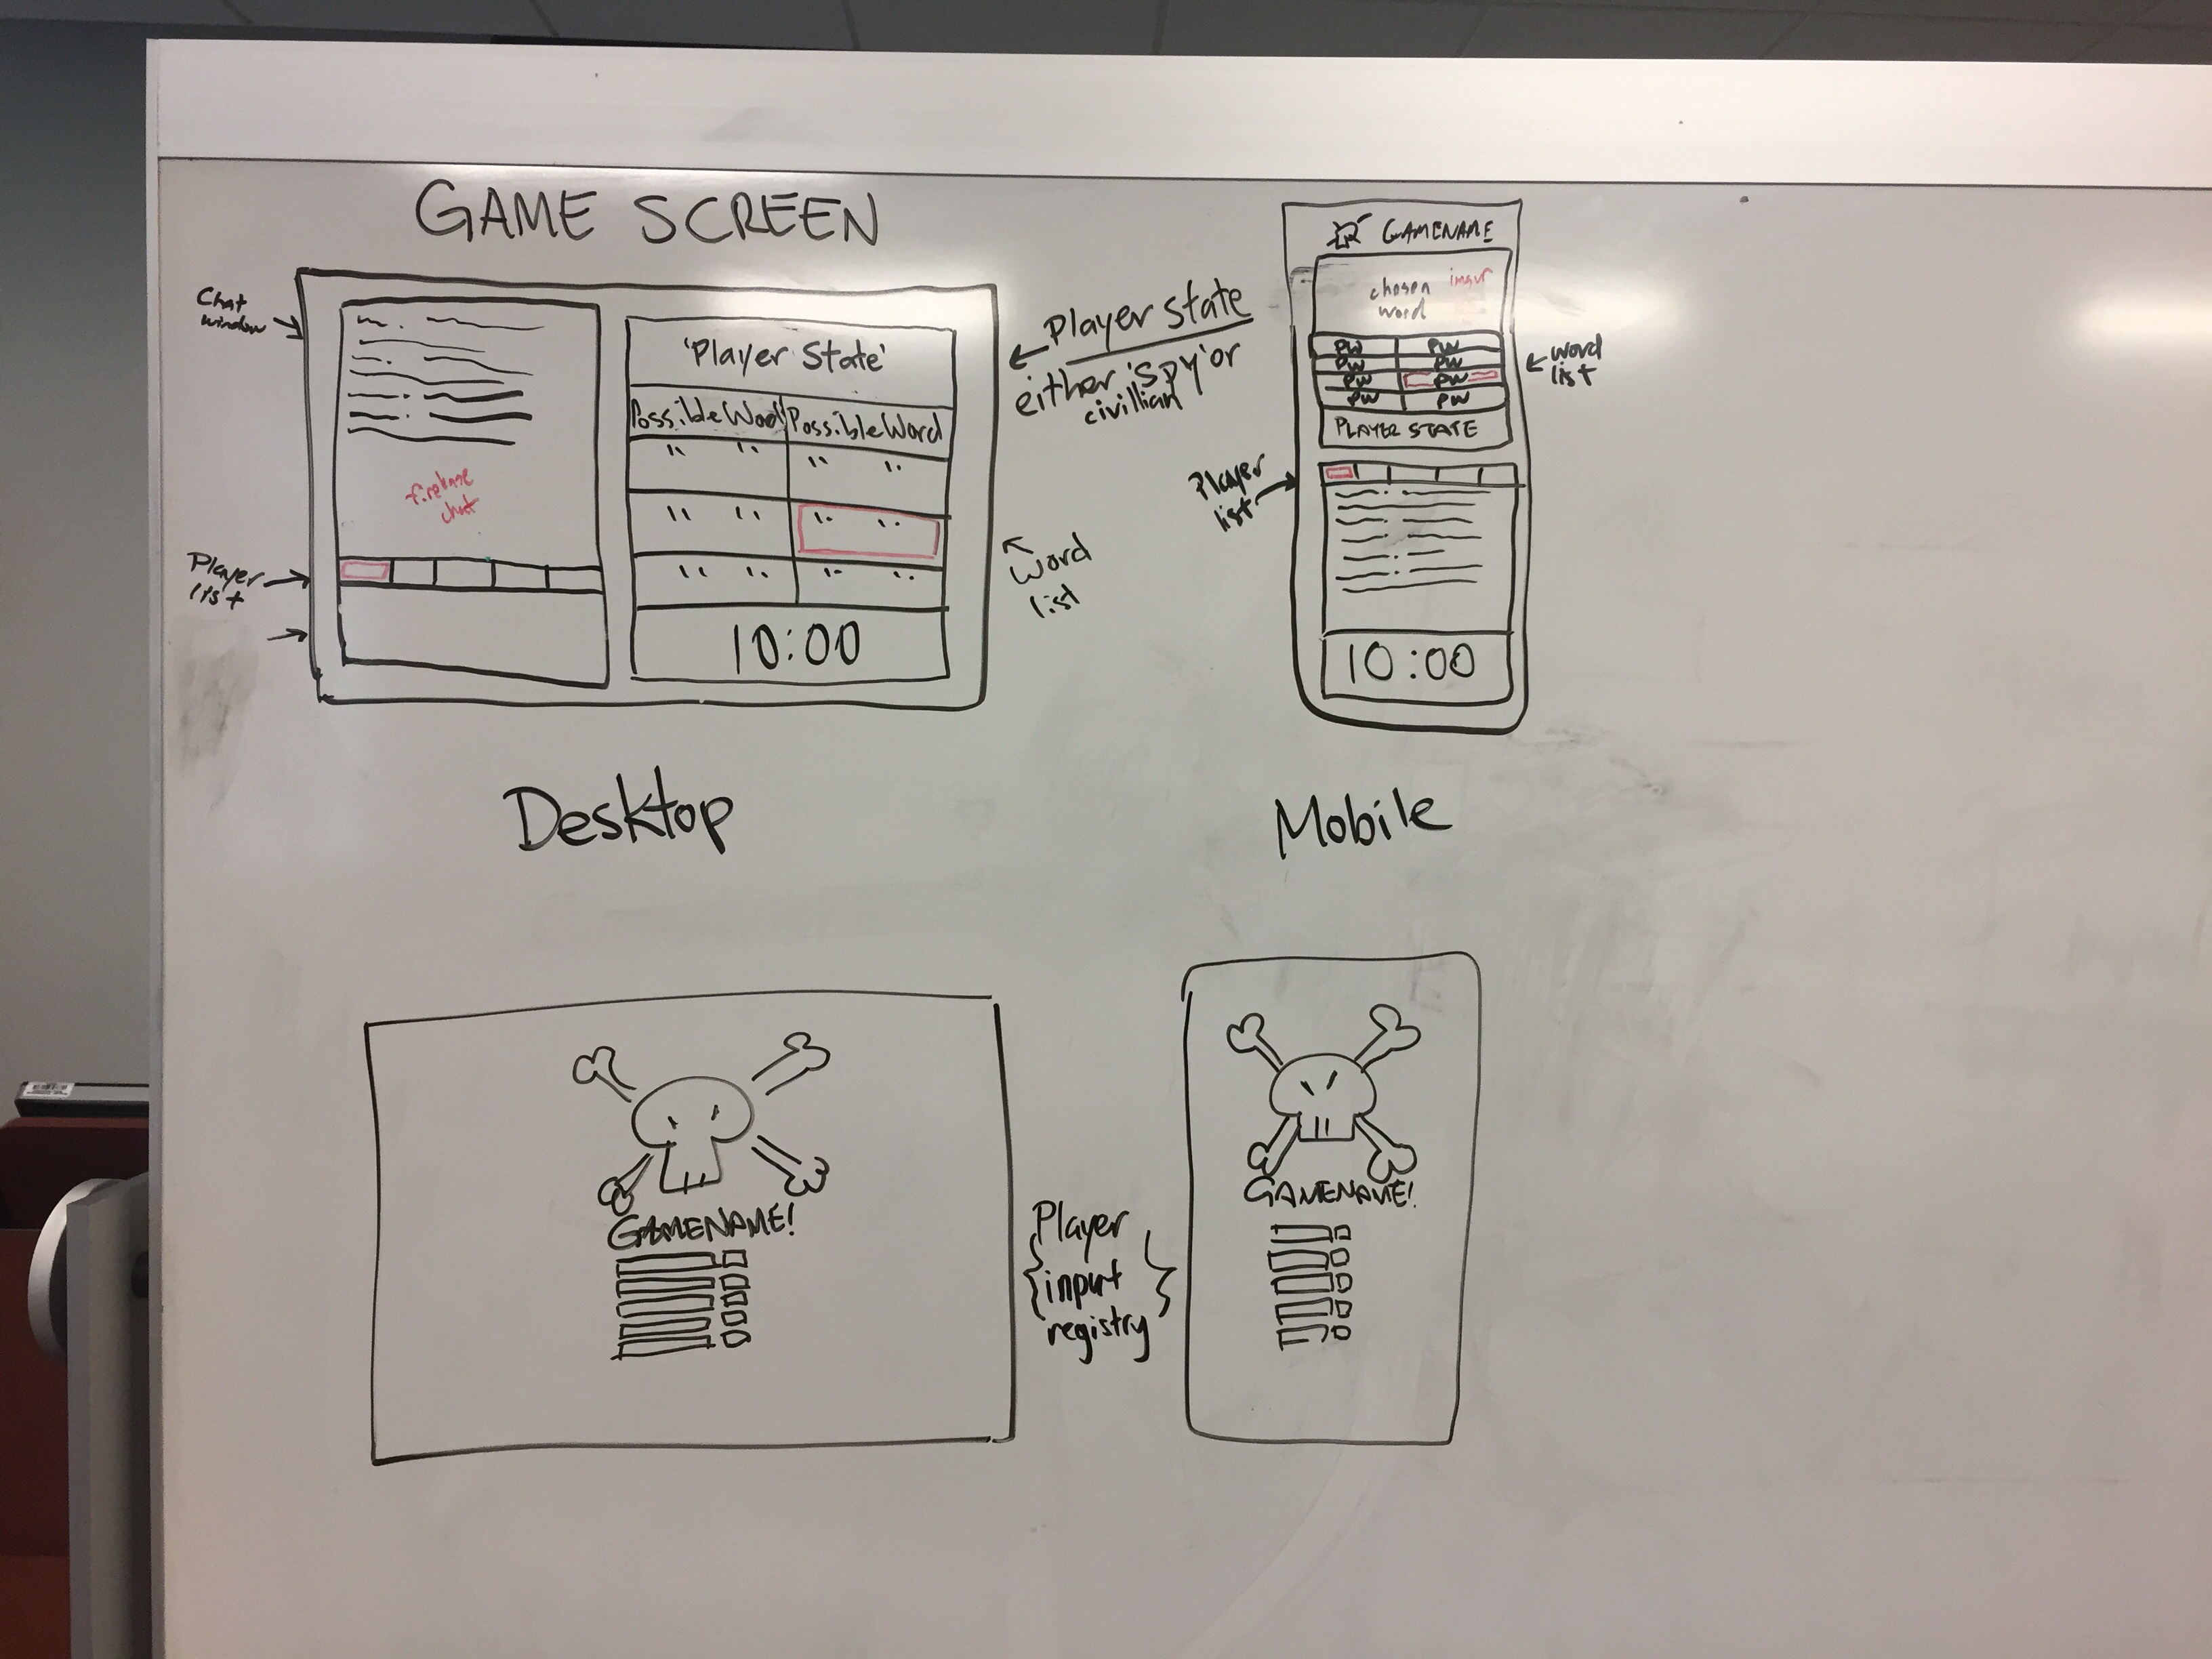 GAME SCREEN
Chat
window
firebase
chat
Player
list
'Player State'
Possible Wod
Possible Word
" "
" "
" "
" "
" "
" "
10:00
Player state
either 'spy' or
civillian
word
list
Desktop
GAMENAME
chosen
word
imgur
PW PW
PW PW
PW PW
PW PW
PLAYER STATE
word
list
Player
list
10:00
Mobile
GAMENAME!
Player
input
registry
GAMENAME!